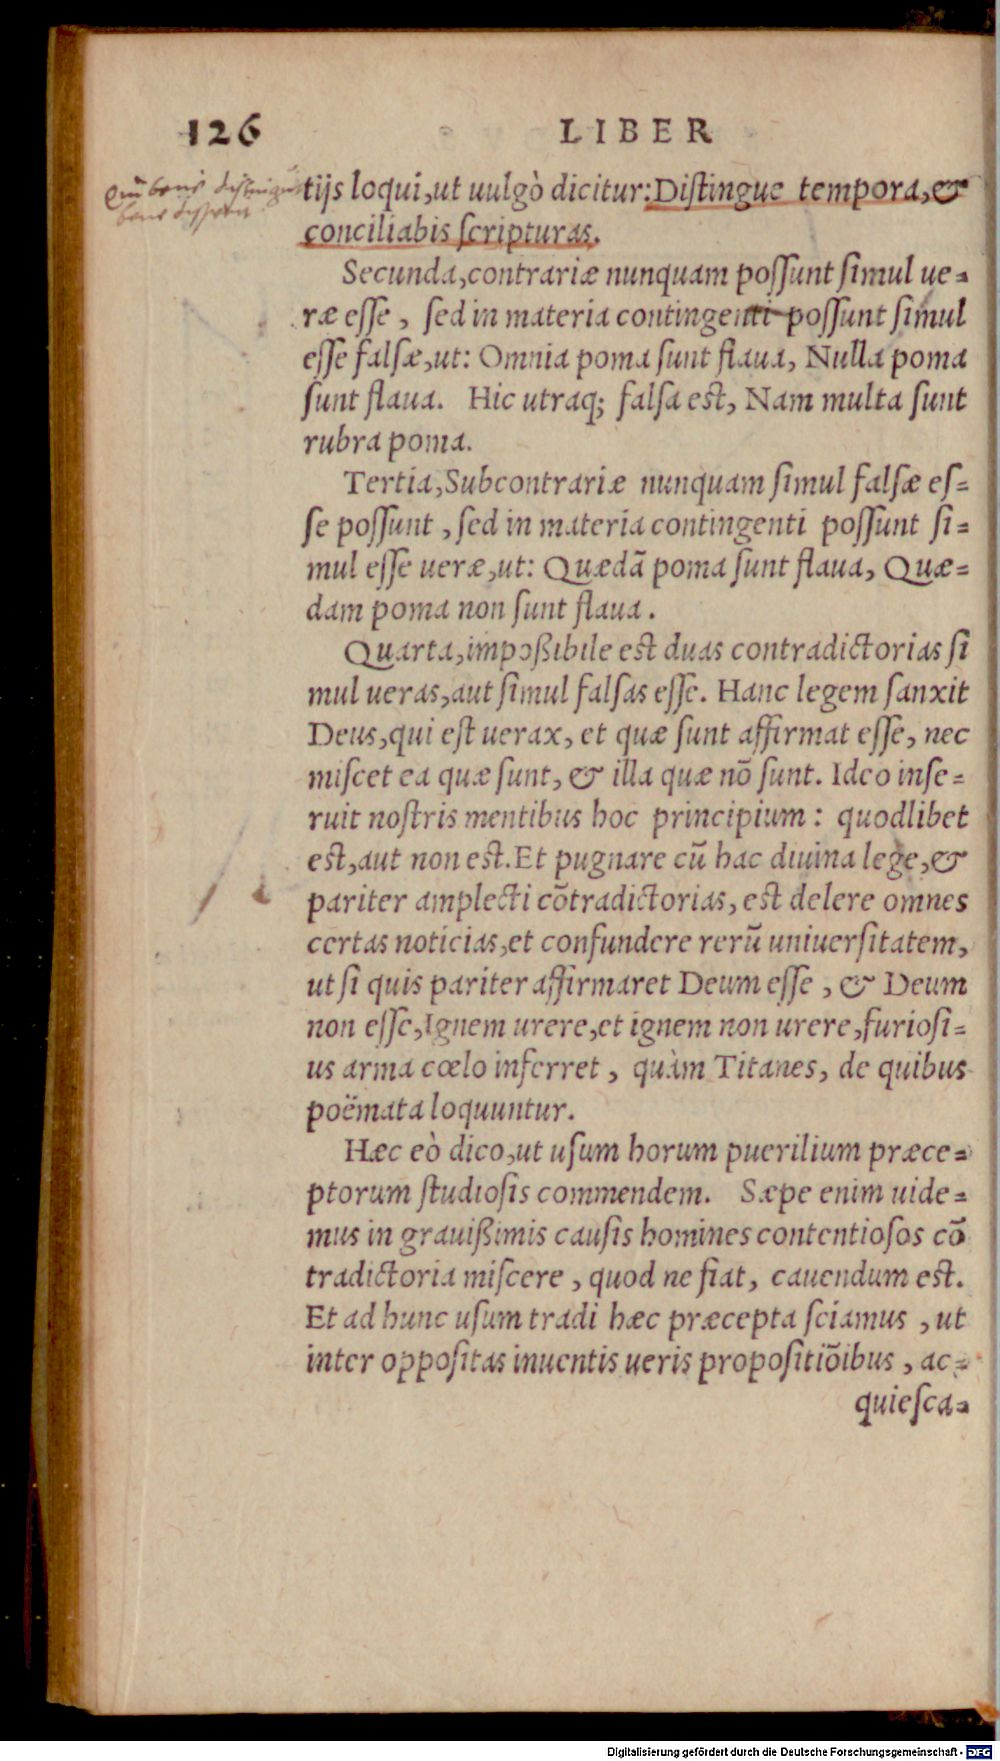 126 LIBER
Qui bene distinguit
bene
tijs loqui, ut uulgò dicitur: Distingue tempora, &
conciliabis scripturas.
Secunda, contrariæ nunquam possunt simul ue=
ræ esse, sed in materia contingenti possunt simul
esse falsæ, ut: Omnia poma sunt flaua, Nulla poma
sunt flaua. Hic utraq; falsa est, Nam multa sunt
rubra poma.
Tertia, Subcontrariæ nunquam simul falsæ es=
se possunt, sed in materia contingenti possunt si=
mul esse ueræ, ut: Quædã poma sunt flaua, Quæ=
dam poma non sunt flaua.
Quarta, impoßibile est duas contradictorias si
mul ueras, aut simul falsas esse. Hanc legem sanxit
Deus, qui est uerax, et quæ sunt affirmat esse, nec
miscet ea quæ sunt, & illa quæ nõ sunt. Ideo inse=
ruit nostris mentibus hoc principium: quodlibet
est, aut non est. Et pugnare cũ hac diuina lege, &
pariter amplecti cõtradictorias, est delere omnes
certas noticias, et confundere rerũ uniuersitatem,
ut si quis pariter affirmaret Deum esse, & Deum
non esse, Ignem urere, et ignem non urere, furiosi=
us arma cœlo inferret, quàm Titanes, de quibus
poëmata loquuntur.
Hæc eò dico, ut usum horum puerilium præce=
ptorum studiosis commendem. Sæpe enim uide=
mus in grauißimis causis homines contentiosos cõ
tradictoria miscere, quod ne fiat, cauendum est.
Et ad hunc usum tradi hæc præcepta sciamus, ut
inter oppositas inuentis ueris propositiõibus, ac=
quiesca=
Digitalisierung gefördert durch die Deutsche Forschungsgemeinschaft - DFG